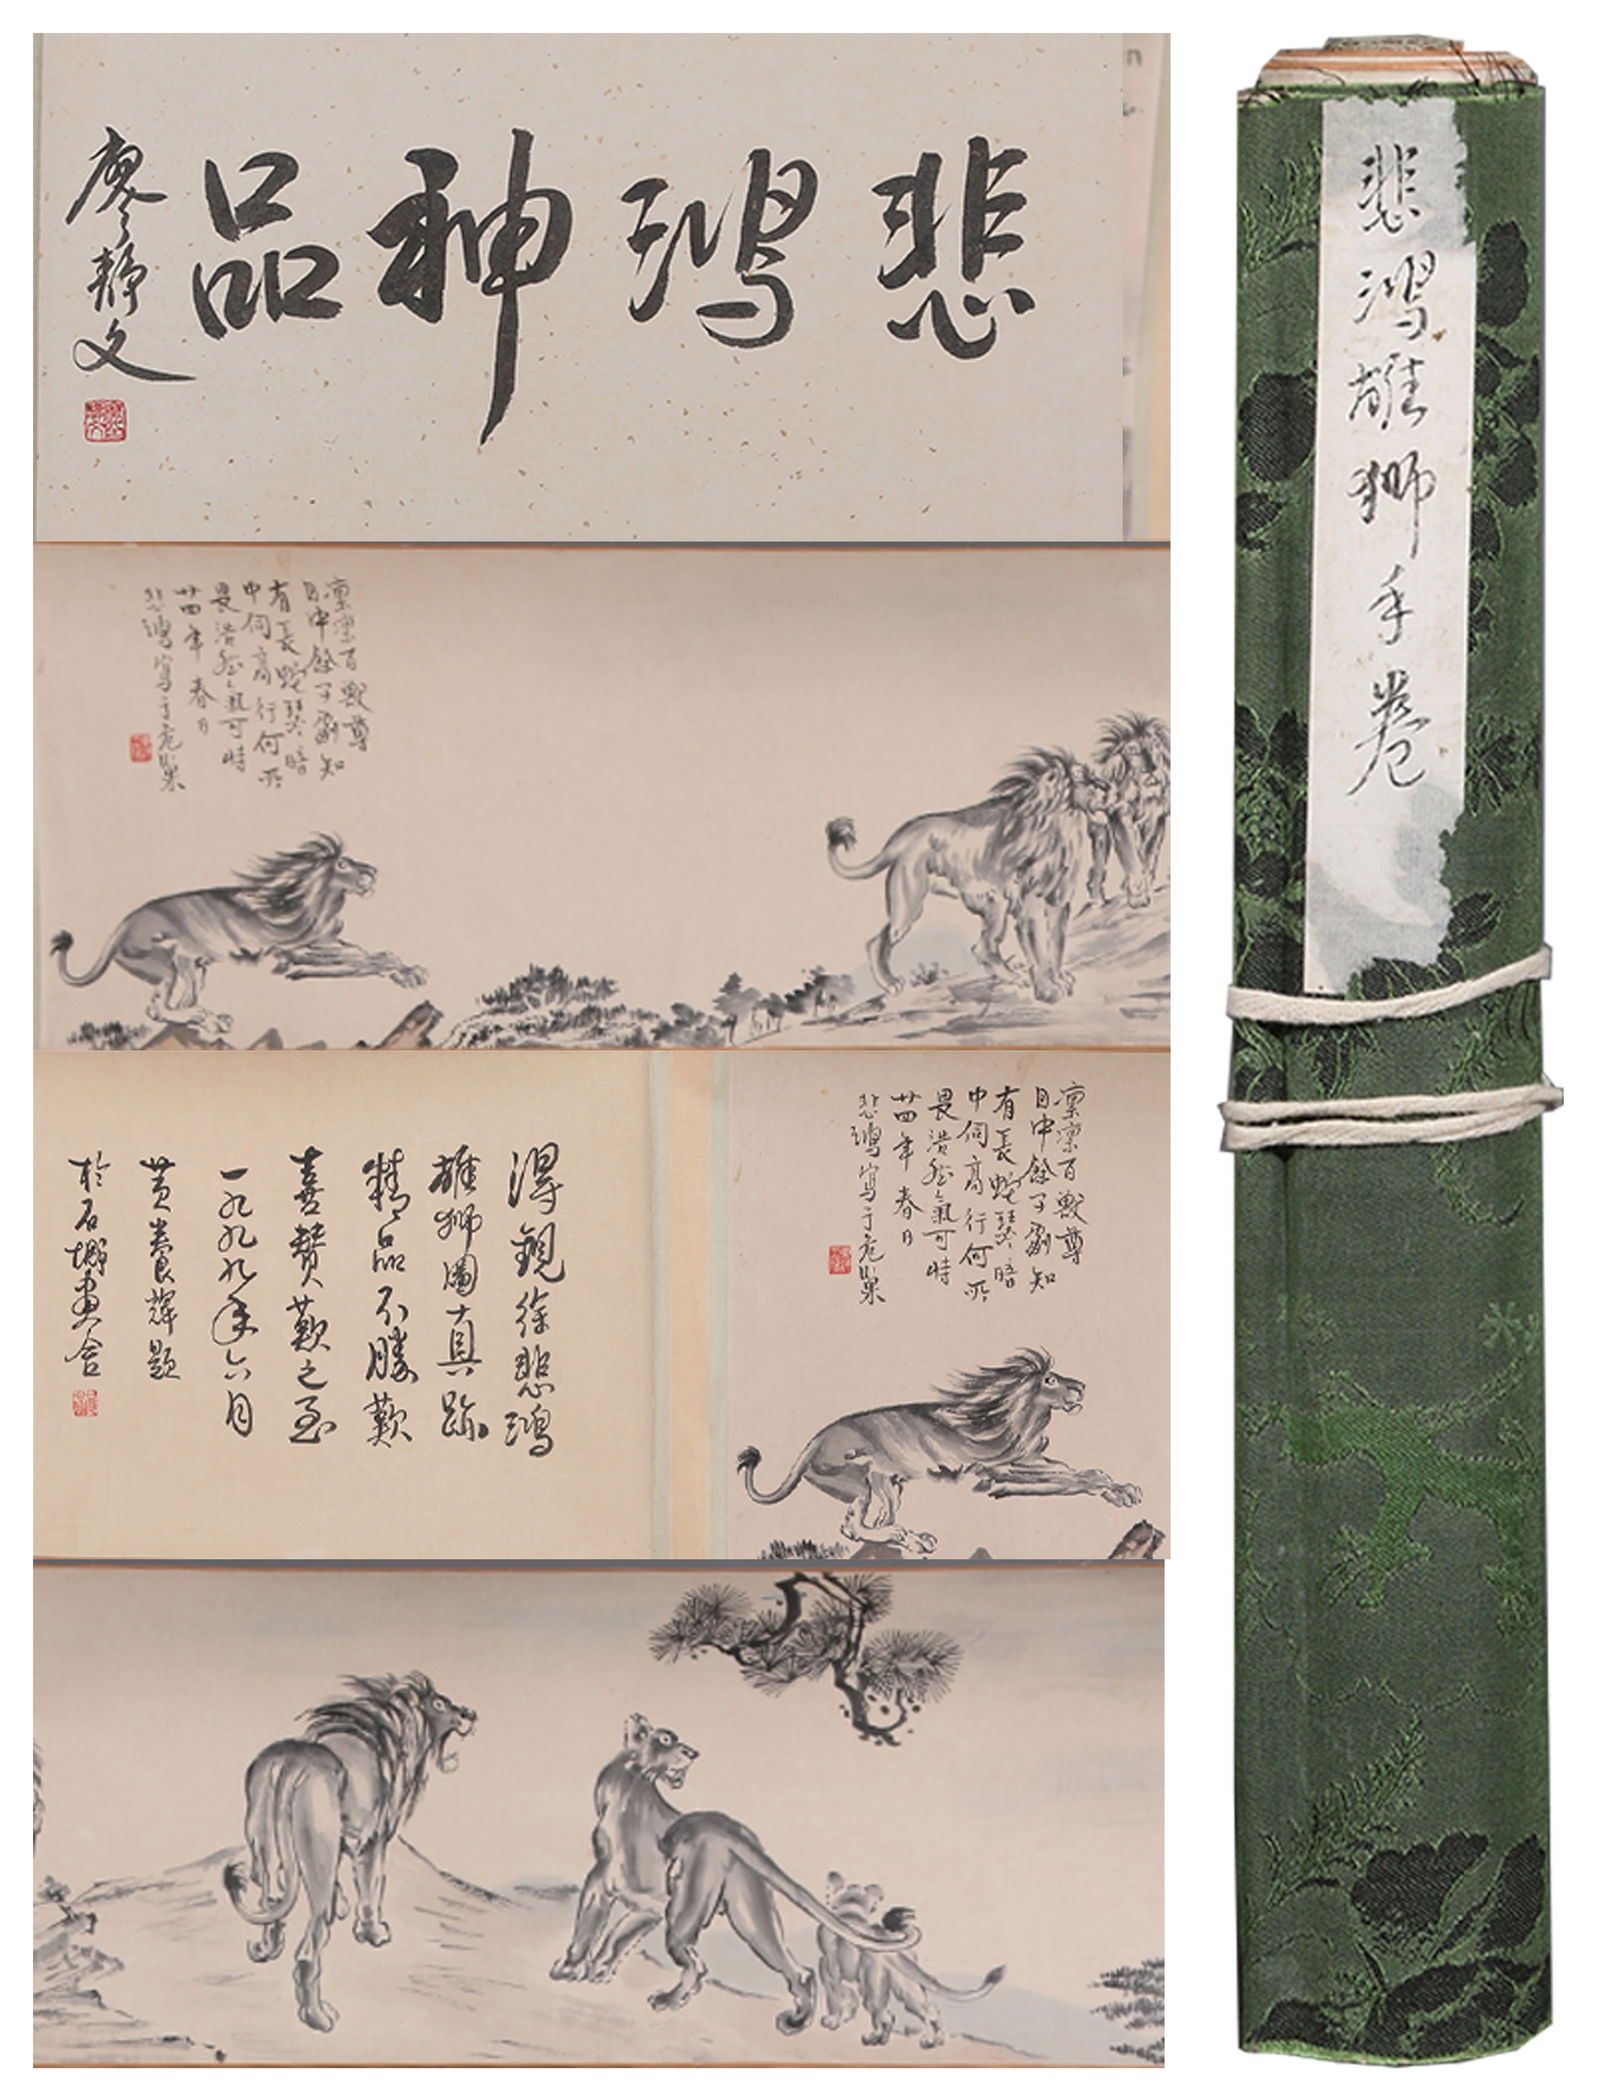 悲鴻神品
廖靜文
悲鴻雄獅手卷
凜凜百獸尊
目中餘子劇知
有長蛇 暗
中伺高行何所
畏浩然氣可恃
廿四年春日
悲鴻寫于危巢
凜凜百獸尊
目中餘子劇知
有長蛇 暗
中伺高行何所
畏浩然氣可恃
廿四年春日
悲鴻寫于危巢
得觀徐悲鴻
雄獅圖真跡
精品不勝歡
喜贊歎之至
一九九九年六月
黃養輝題
於石城畫舍